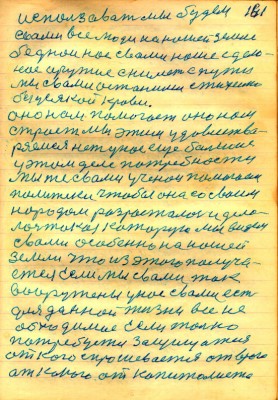 использоват мы будем 181
свами все люди на нашей земле
бедной нное свами наше сдела-
ное оружие снимет с пути
мы свами останим стихию
безвсякой крови.
оно нам помогает оно нам
строет мы этим удовлетва-
ряемся нет у нас еще большие
у этом деле потребности
мы те свами ученои помогаем
политики чтобы она со своим
народом разросталос и дела-
лос такая которую мы видем
свами особенно на нашей
земли что из этого получа-
ется если мы свами так
вооружены у нас свами ест
для данной жизни все не
обходимае если только
потребуется защищатся
от кого спрошевается от врага
от какого от капиталиста